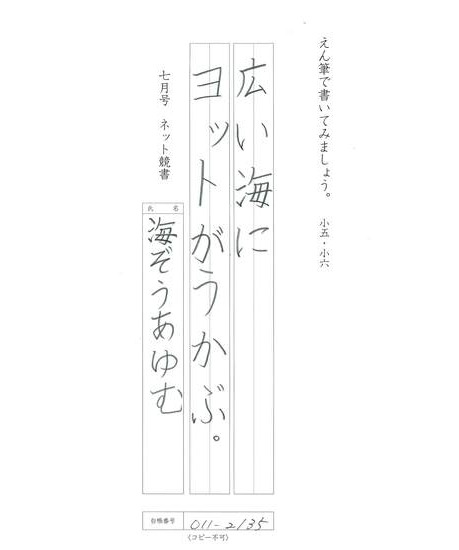 えん筆で書いてみましょう。 小五・小六
広い海に
ヨットがうかぶ。
七月号 ネット競書
氏 名
海ぞうあゆむ
台帳番号 011-2135
(コピー不可)